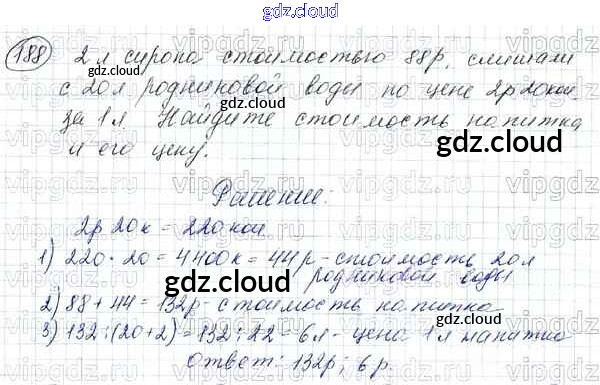 gdz.cloud
188 2 л сиропа стоимостью 88р. смешали
с 20 л родниковой воды по цене 2р 20коп
за 1 л. Найдите стоимость напитка
и его цену.
Решение:
2р 20к = 220 коп
1) 220 · 20 = 4400к = 44р - стоимость 20л
родниковой воды
2) 88 + 44 = 132р - стоимость напитка
3) 132 : (20+2) = 132 : 22 = 6л - цена 1л напитка
Ответ: 132р; 6р.